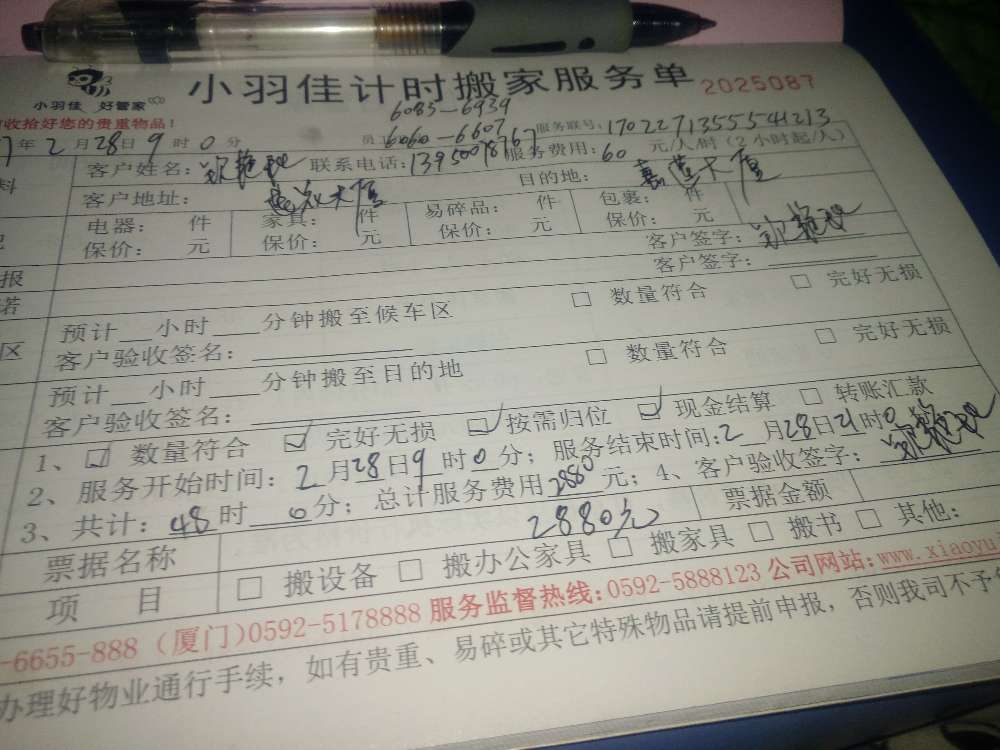 小羽佳 好管家
小羽佳计时搬家服务单 2025087
收拾好您的贵重物品!
6085-6939
6060-6607
服务联号:1702271355541213
年2月28日9时0分
客户姓名: 联系电话: 服务费用:60 元/人时(2小时起/人)
客户地址: 大厦 目的地: 大厦
电器: 件 家具: 件 易碎品: 件 包裹: 件
保价: 元 保价: 元 保价: 元 保价: 元
客户签字:
报 客户签字:
诺 预计__小时___分钟搬至候车区 □ 数量符合 □ 完好无损
区 客户验收签名:
预计__小时___分钟搬至目的地 □ 数量符合 □ 完好无损
客户验收签名:
1、☑ 数量符合 ☑ 完好无损 ☑ 按需归位 ☑ 现金结算 □ 转账汇款
2、服务开始时间:2月28日9时0分;服务结束时间:2月28日21时0
3、共计:48时0分;总计服务费用2880元;4、客户验收签字:
票据名称 2880元 票据金额
项 目 □ 搬设备 □ 搬办公家具 □ 搬家具 □ 搬书 □ 其他:
-6655-888(厦门)0592-5178888 服务监督热线:0592-5888123 公司网站:www.xiaoyu
办理好物业通行手续,如有贵重、易碎或其它特殊物品请提前申报,否则我司不予